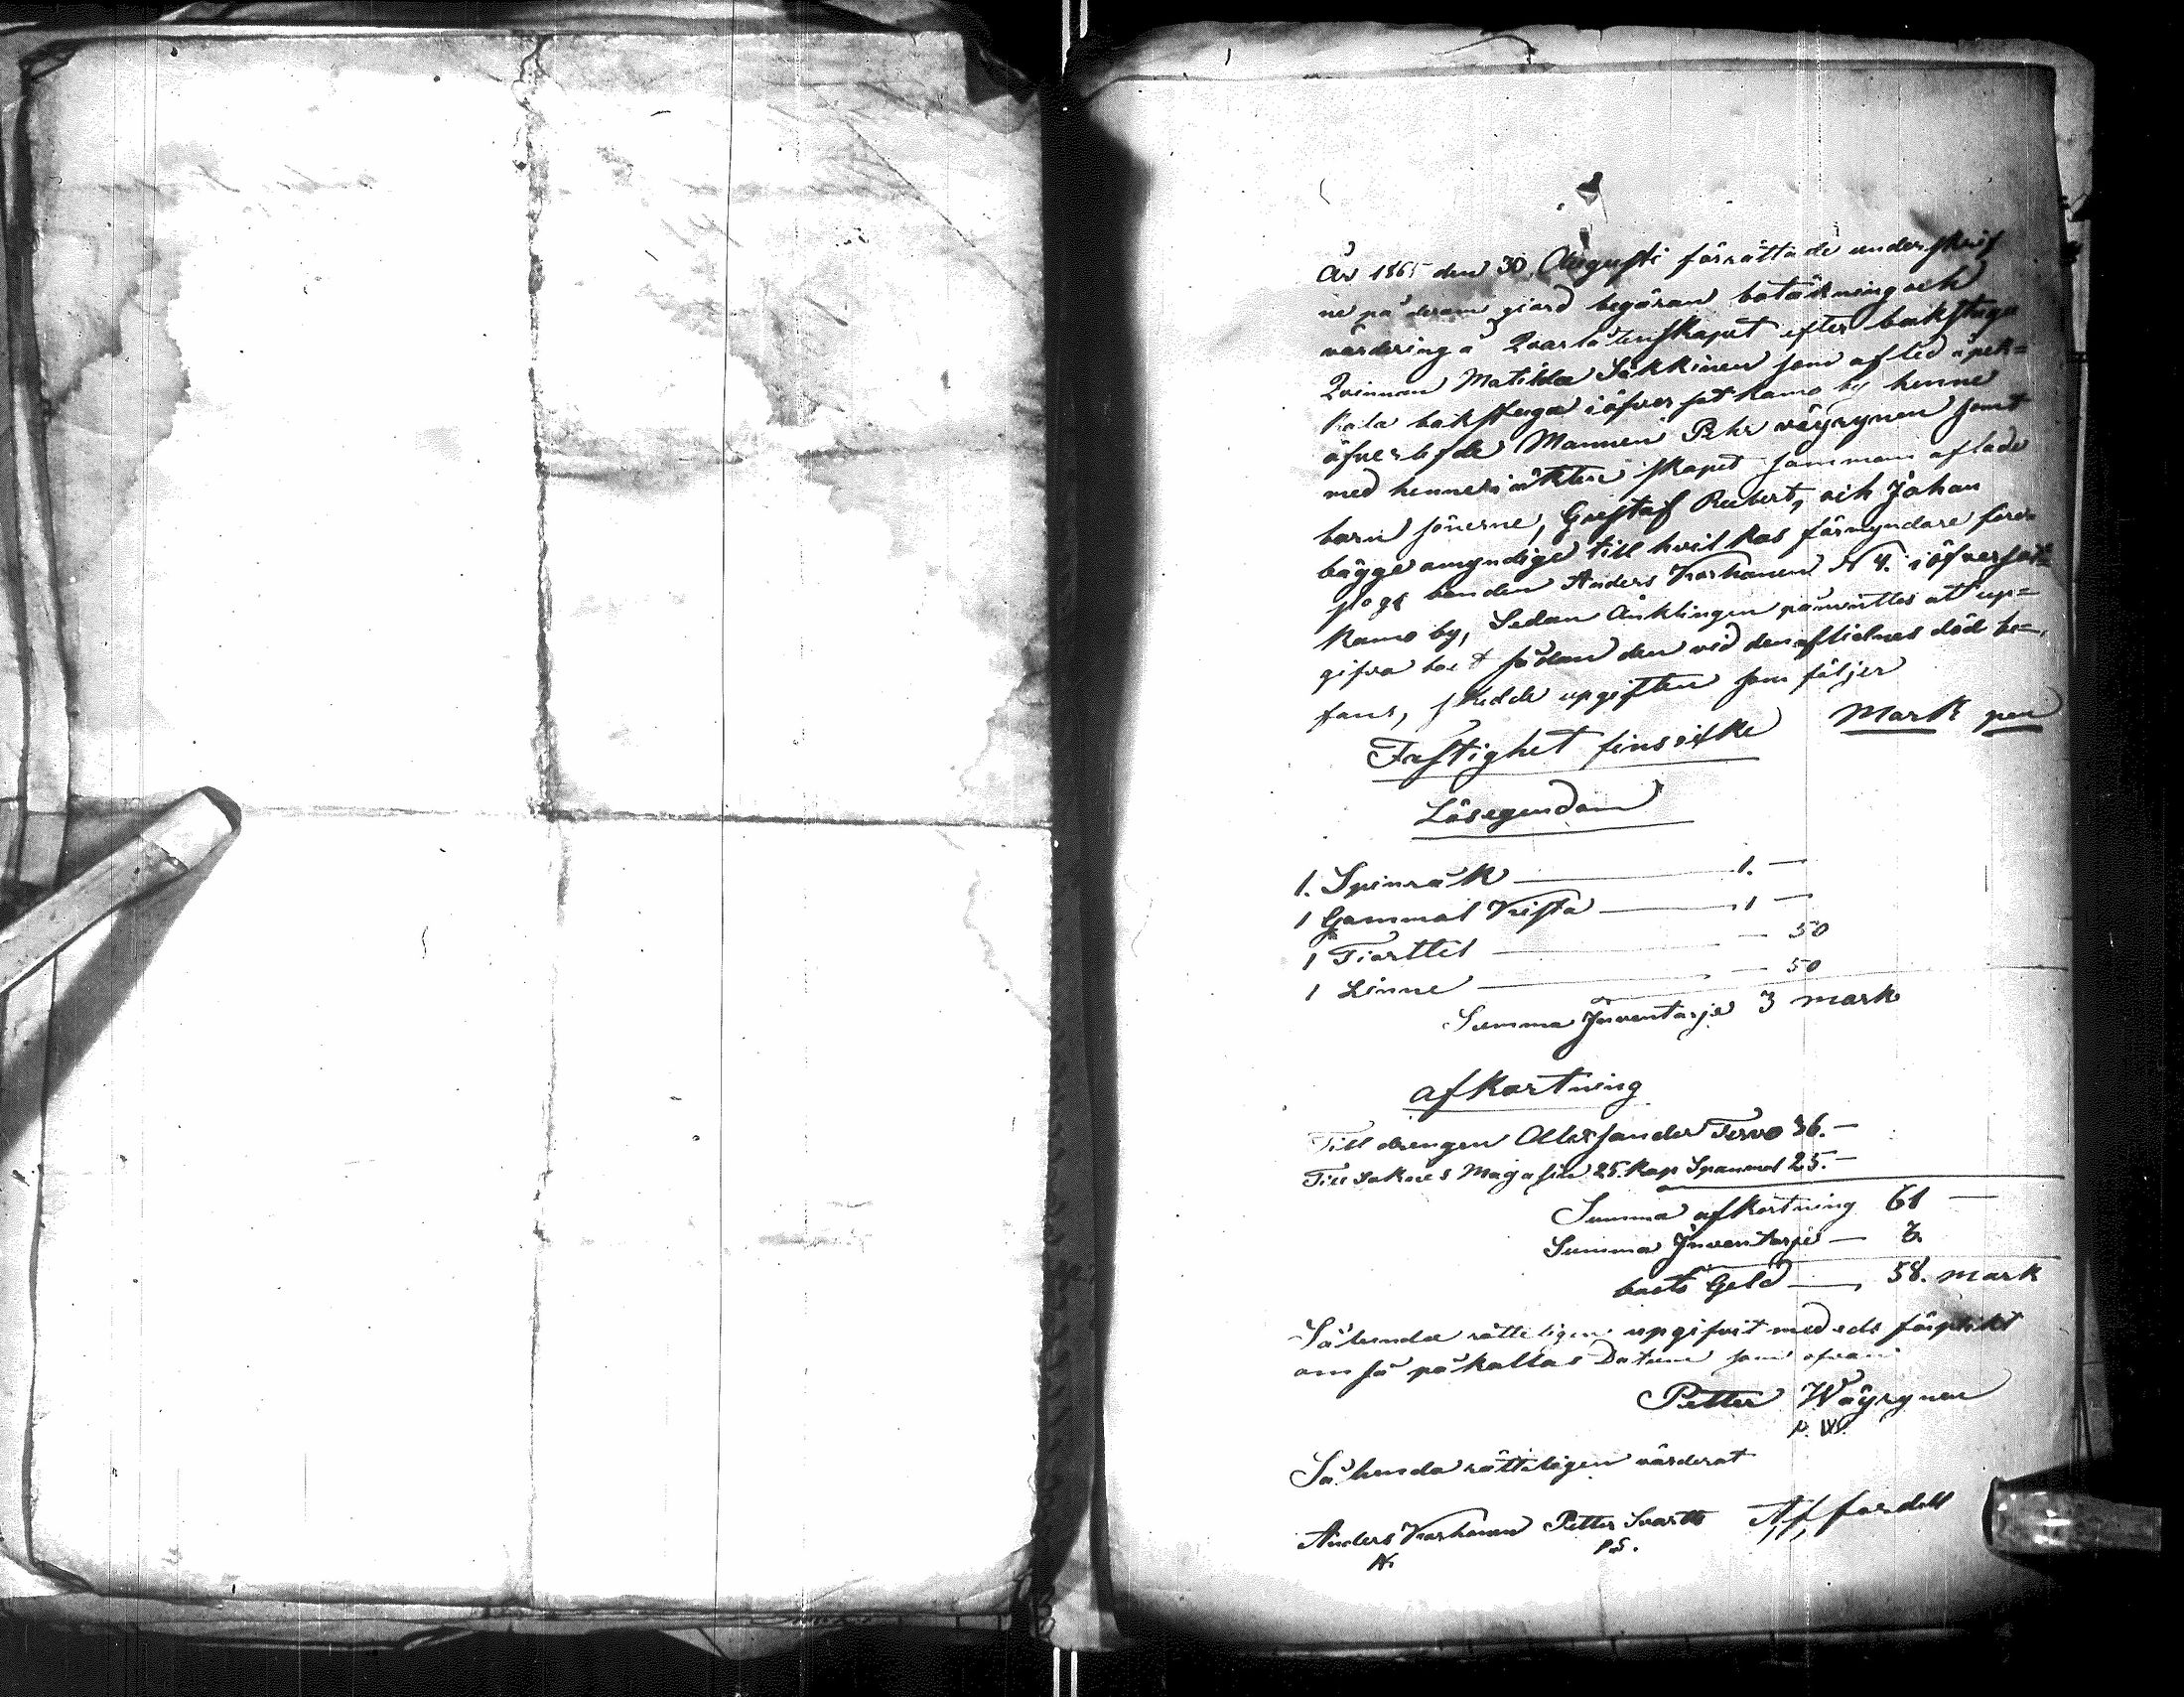 År 1865 den 30 Augusti förrättade underskrif
ne på derom giord begäran botäkning och
värdering å Qvarlåtenskapet efter bakstugu
Qvinnan Matilda Säkkinen som afled i pek=
kala bakstuga i öfver sot kamo by henne
öfverlefde Mannen Pehr väyrynen samt
med henne i äktenskapet sammans aflade
barn sönerne, Gustaf Robert, och Johan
bägge omyndige till hvilkas förmyndare före
slogs bonden Anders Karhonen N 4. i öfversot=
kamo by, Sedan Änklingen påmintes att up=
gifva boet sådan den vid den aflidnes död be=
fans, skedde upgiften som följer
Mark pen
Fastighet fins icke
Lösegendom
1. Spinråk 1. —
1 Gammal Kista 1 —
1 Fiarttel — 50
1 Linne — 50
Summa Inventarje 3 mark
afkortning
Till drengen Allexsander Tervo 36. —
Till Soknes Magasin 25. Kap Spanmol 25. —
Summa afkortning 61 —
Summa Inventarje — 3.
boets Geld — 58. mark
Såhunda rätteligen upgifvit med eds förplikt
om så påkallas Datum som ofvan
Petter Wäyrynen
P. W.
Såhunda rätteligen värderat
Anders Karhonen Petter Svartti
P. S.